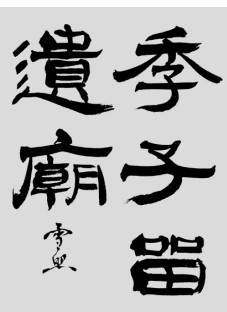 季子留
遺廟
雪興